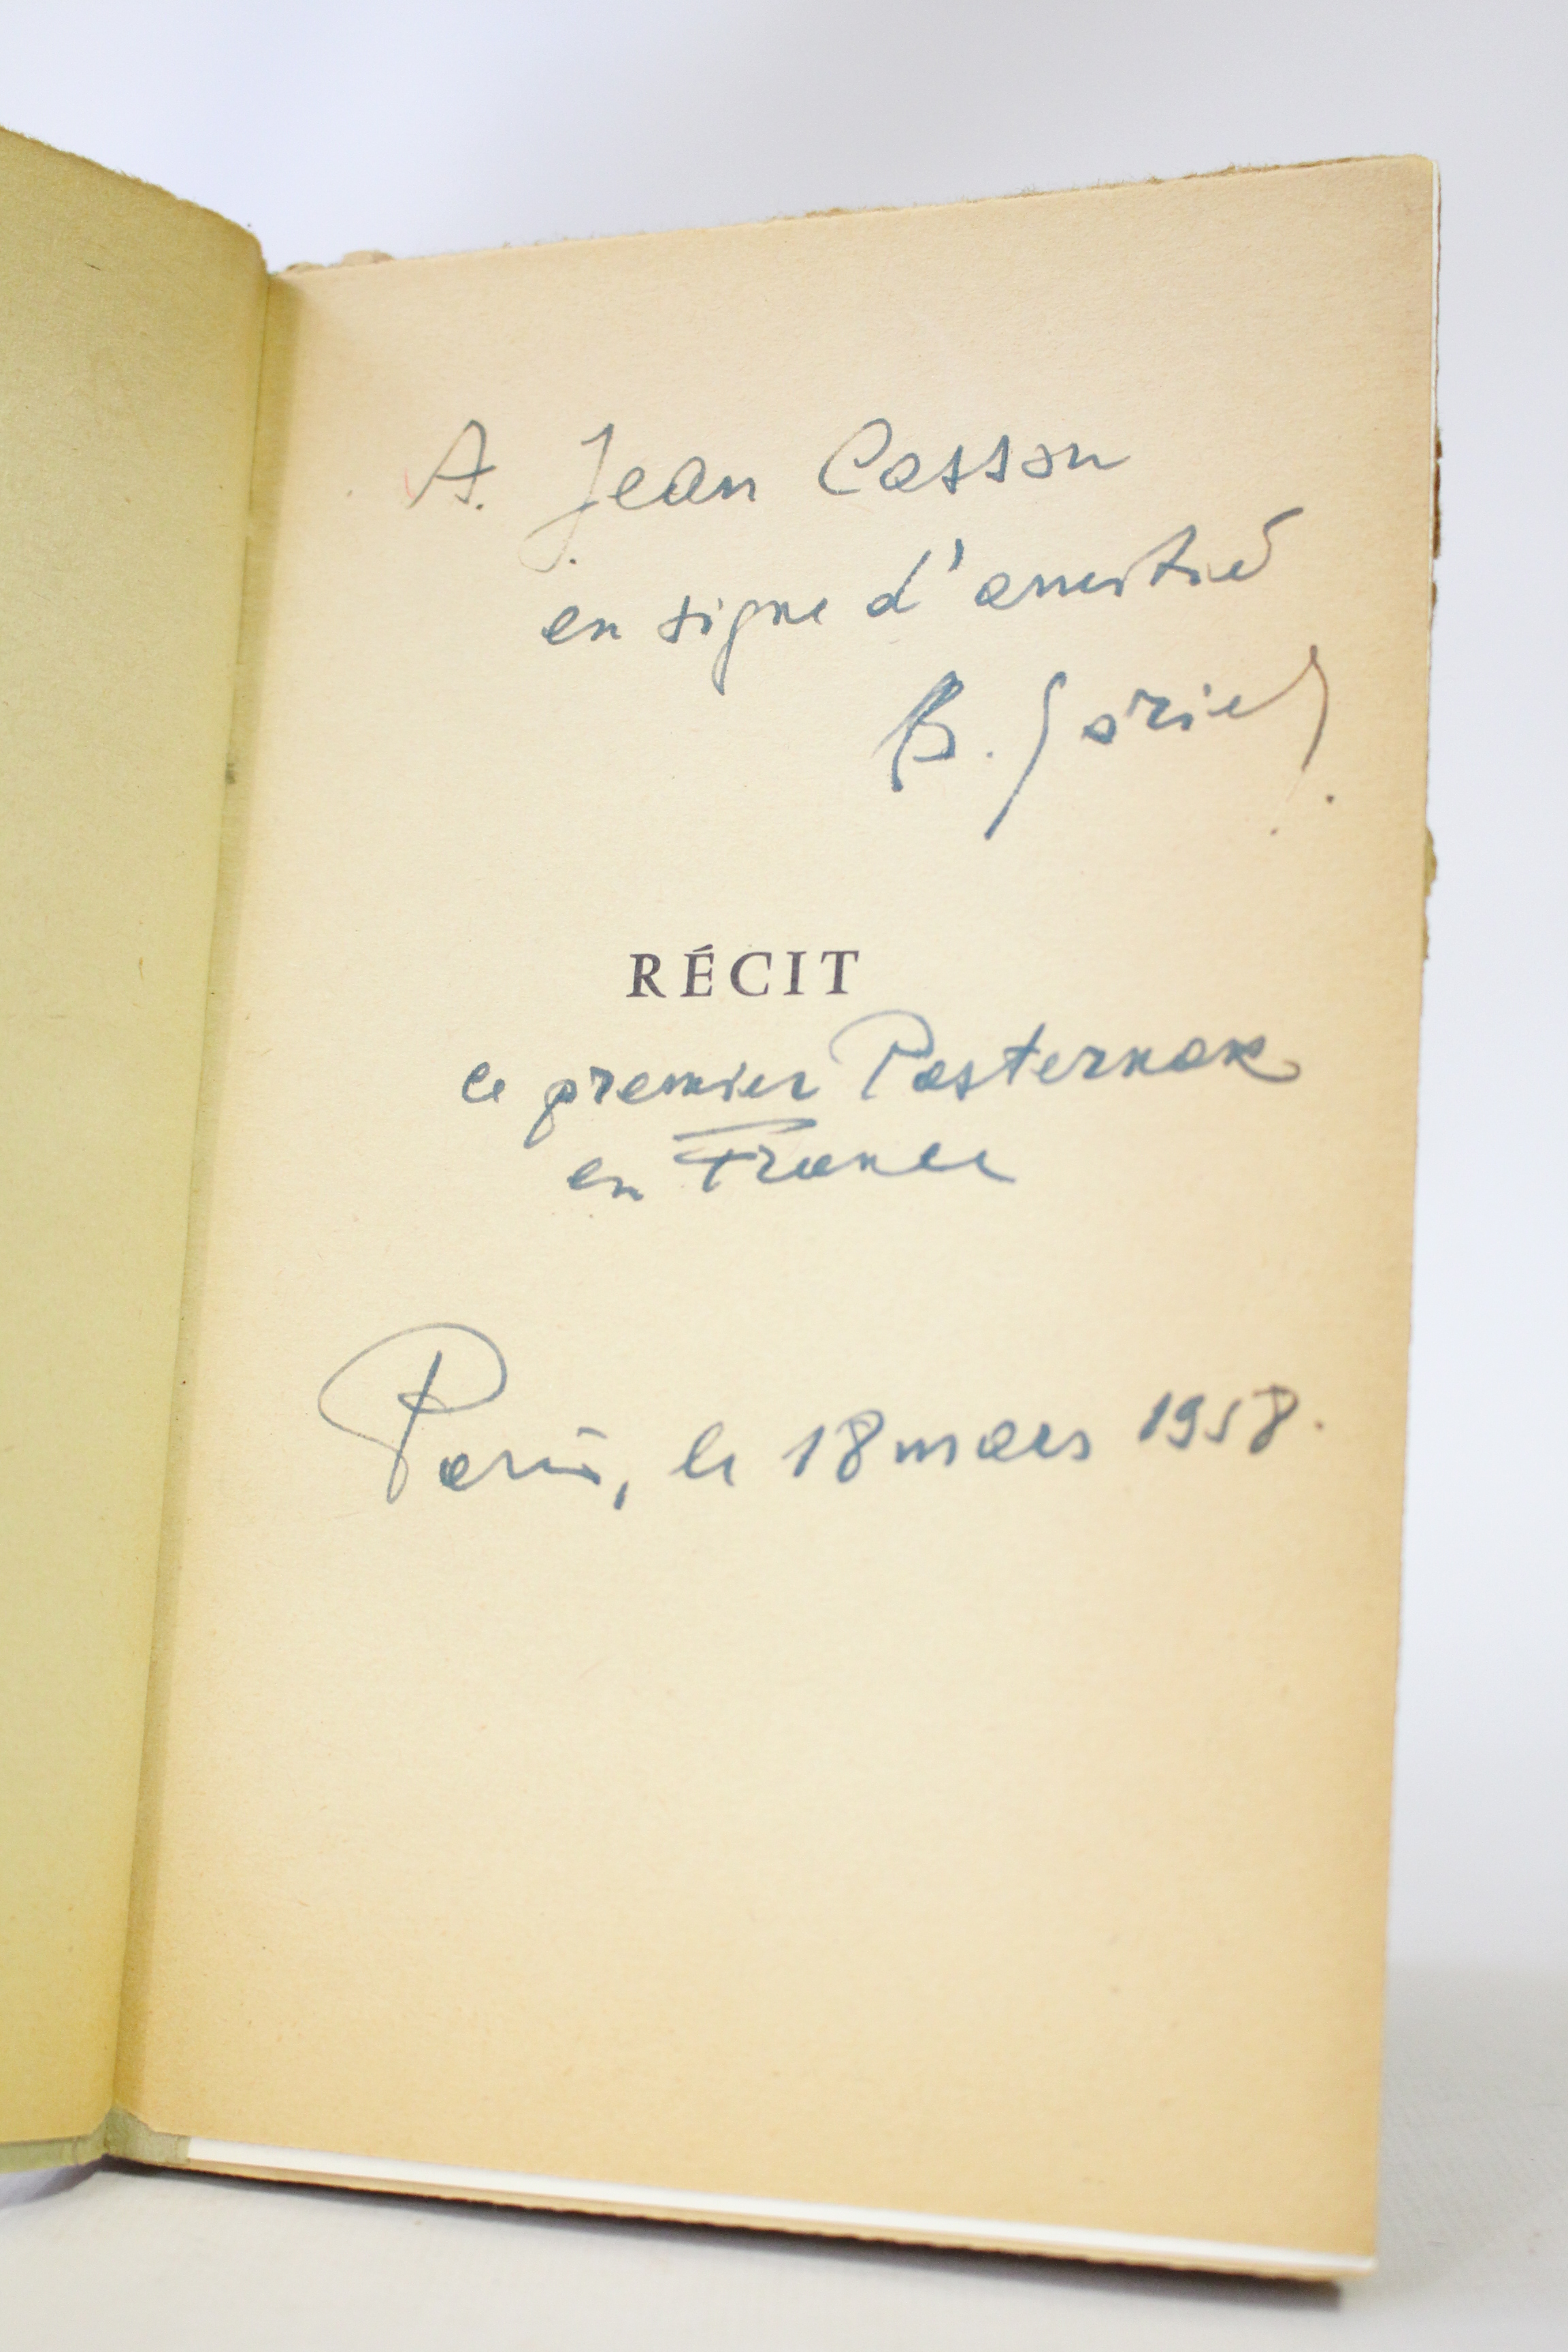 A. Jean Cassou
en signe d'amitié
B. Goriely
RÉCIT
ce premier Pasternak
en France
Paris, le 18 mars 1958.